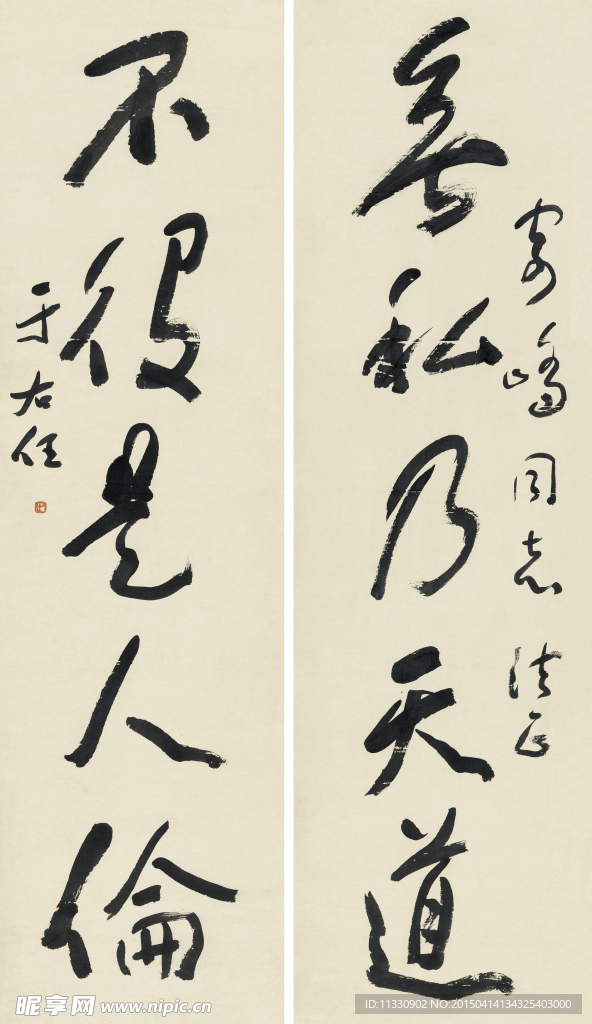 寄嶠同志法正
無私乃天道
不役是人倫
于右任
昵享网 www.nipic.cn
ID:11330902 NO:20150414134325403000